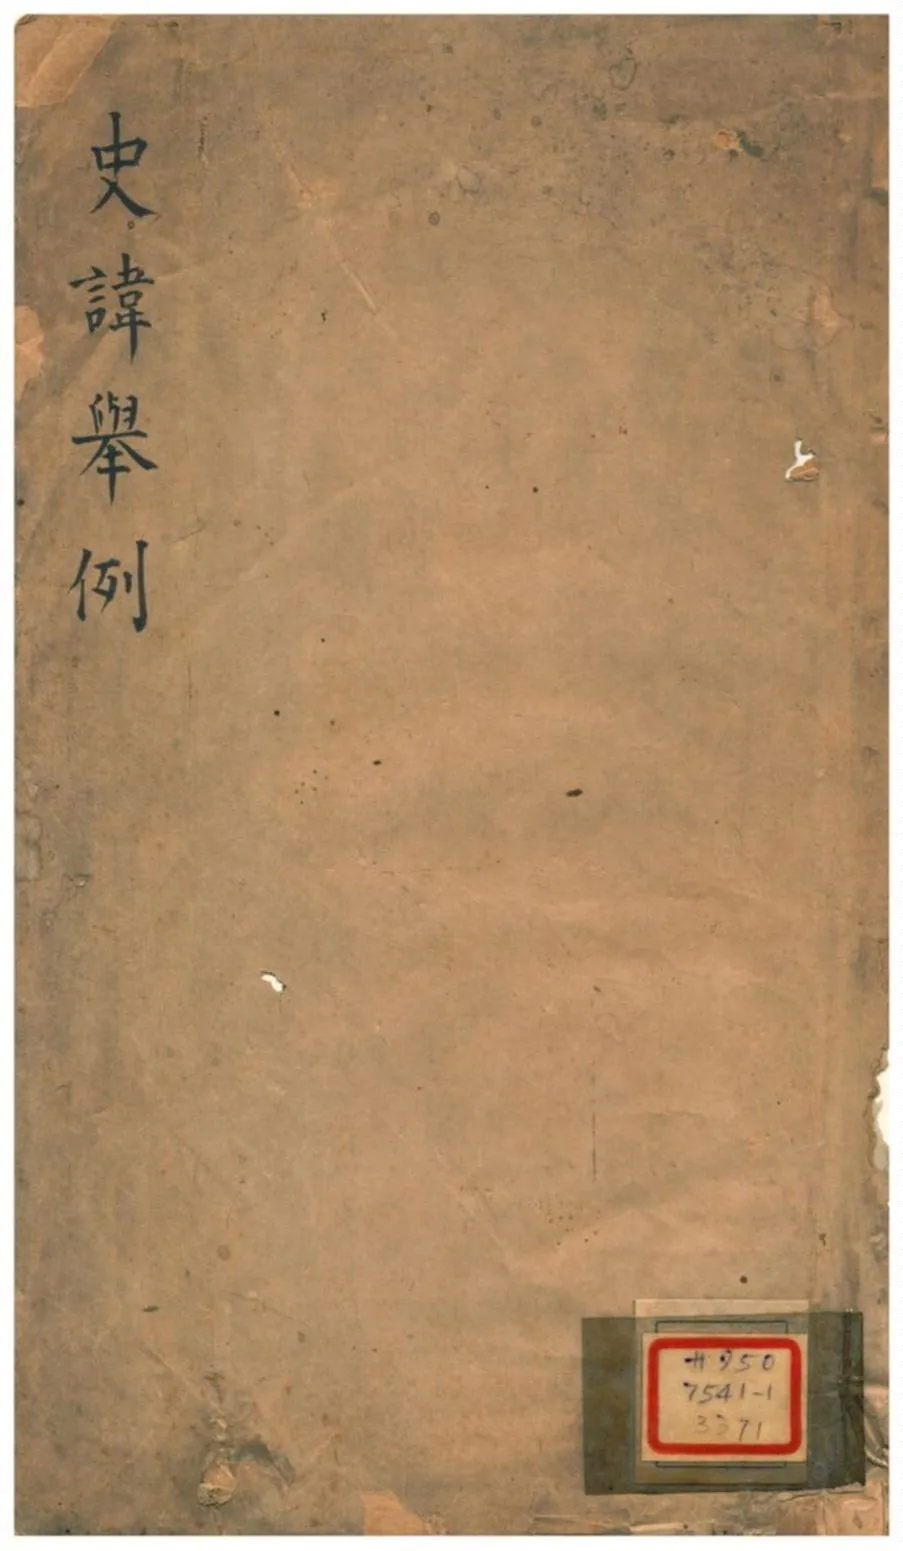 史諱舉例
H950
7541-1
3371